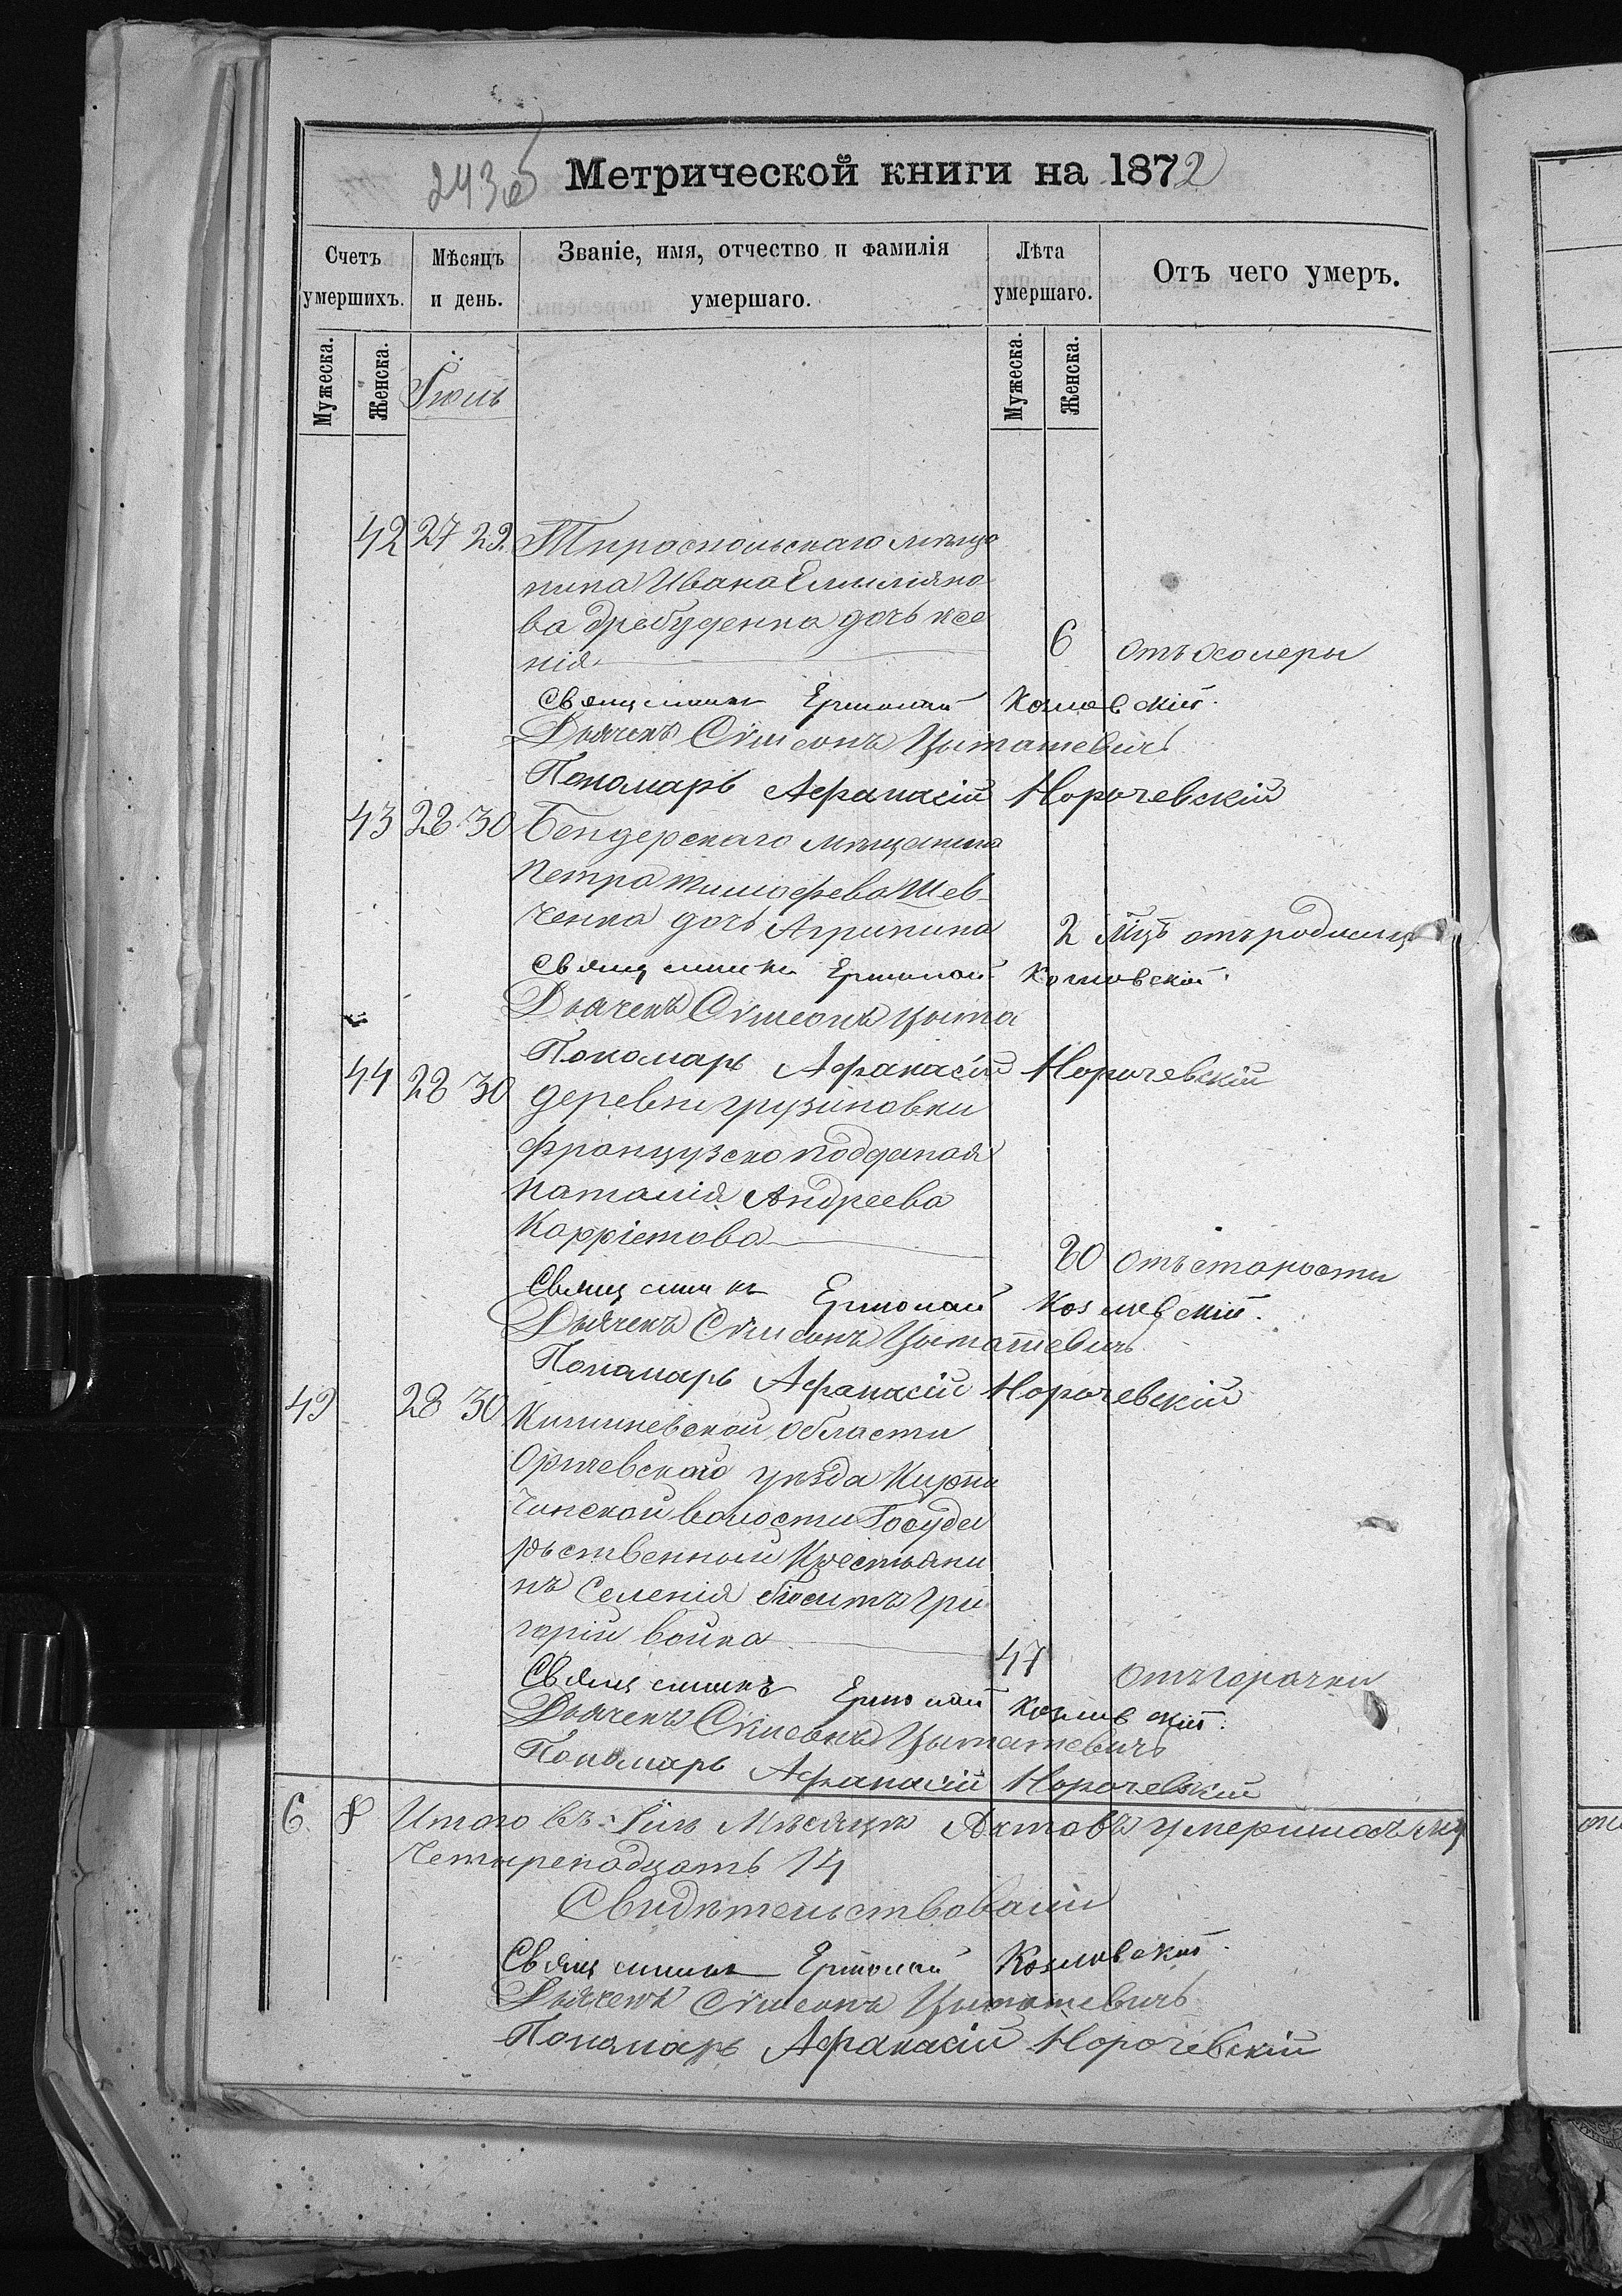 243об
Метрической книги на 1872
Счетъ умершихъ.
Мѣсяцъ и день.
Званіе, имя, отчество и фамилія умершаго.
Лѣта умершаго.
Отъ чего умеръ.
Мужеска.
Женска.
Іюль
Мужеска.
Женска.
42 27 29. Тираспольскаго мѣща
нина Ивана Емиліяно
ва Дребуденка дочь Ксе
нія 6 отъ холеры
Священникъ Ермолай Козловскій.
Дьячекъ Сѵмеонъ Цыташевичъ
Пономарь Афанасій Норочевскій
43 28 30 Бендерскаго мѣщанина
Петра Тимофеева Шев
ченка дочь Агрипина 2 мцъ отъ родимца
Священникъ Ермолай Козловскій.
Дьячекъ Сѵмеонъ Цыта
Пономарь Афанасій Норочевскій
44 28 30 деревни Грузиновки
французско подданая
Наталія Андреева
Карріетова 80 отъ старости
Священникъ Ермолай Козловскій.
Дьячекъ Сѵмеонъ Цыташевичъ
Пономарь Афанасій Норочевскій
49 28 30 Кишиневской области
Оргиевскаго уѣзда Кирпи
чинской волости Госуда
рьственный Крестьяни
нъ Селенія Григорій
горій Войка 47 отъ горячки
Священникъ Ермолай Козловскій.
Дьячекъ Сѵмеонъ Цыташевичъ
Пономарь Афанасій Норочевскій
6. 8 Итого въ Іюлѣ Мѣсяцѣ Актовъ умершихъ
Четыренадцать 14
Свидѣтельствовали
Священникъ Ермолай Козловскій.
Дьячекъ Сѵмеонъ Цыташевичъ
Пономарь Афанасій Норочевскій